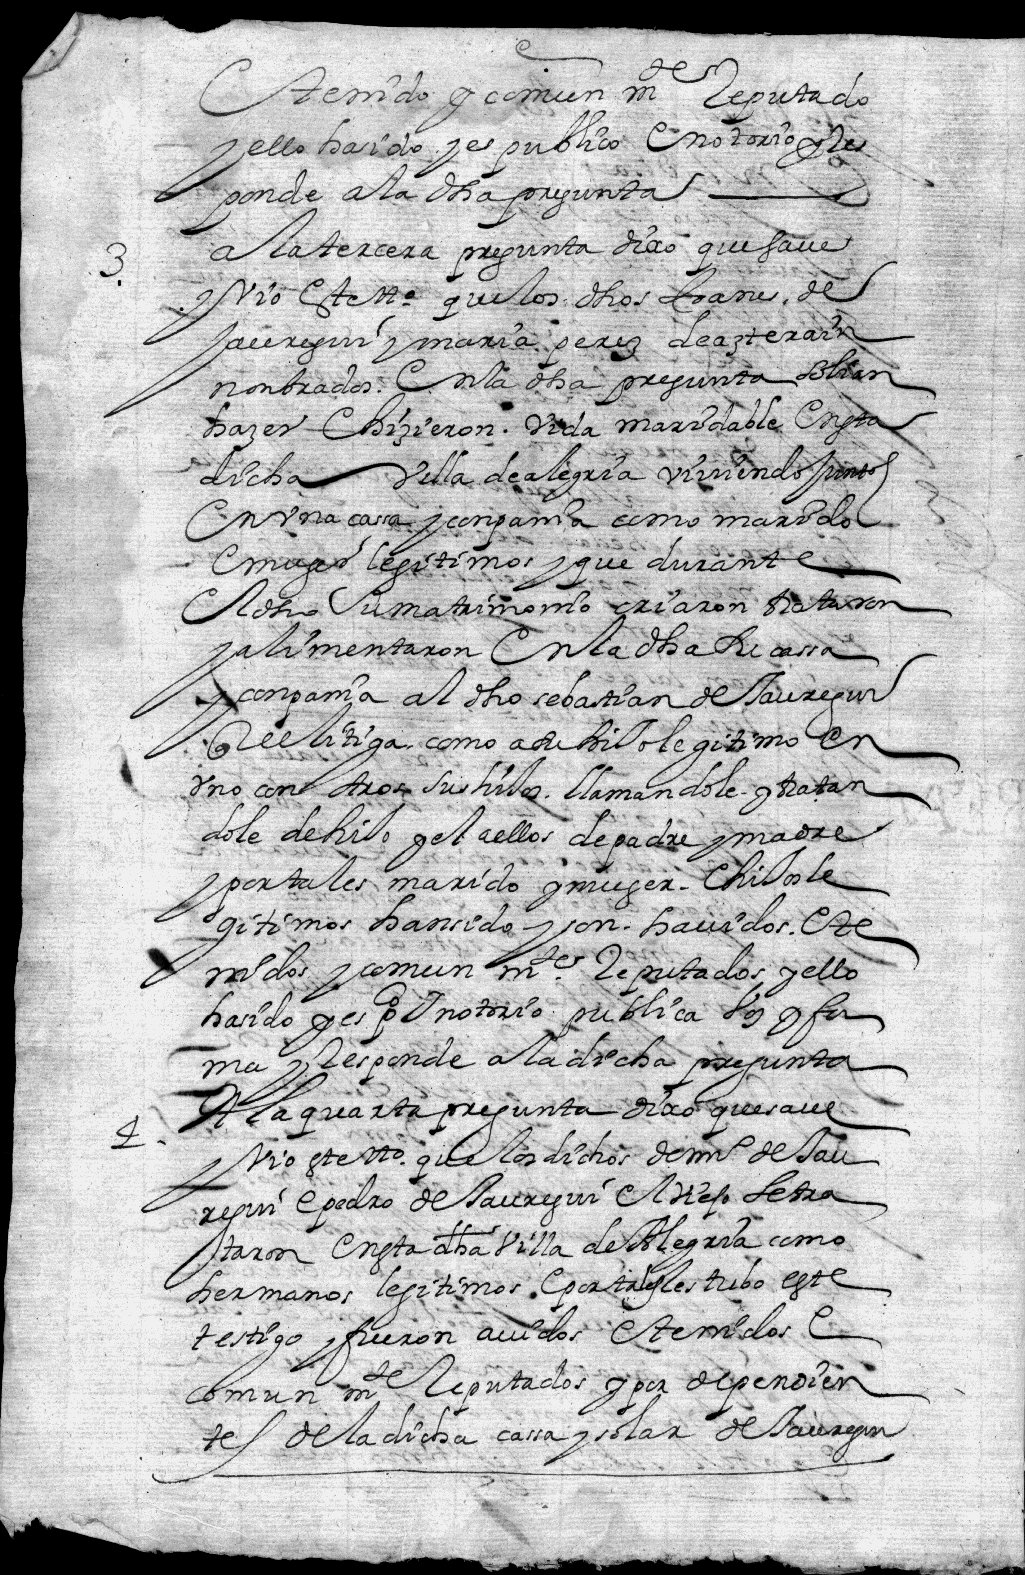 E tenido y comun mte Reputado
y ello ha sido y es publico E notorio y Res
ponde a la dha pregunta
3. a la tercera pregunta dixo que save
y Vio Este tto que los dhos Joanes de
Jauregui y maria perez de azterain
nonbrados En la dha pregunta solian
hazer E hizieron vida maridable En esta
dicha Villa de alegria viviendo juntos
En Vna cassa y conpania como marido
E muger legitimos y que durante
El dho Su matrimonio criaron trataron
y alimentaron En la dha Su cassa
y conpania al dho sebastian de Jauregui
que litiga como a tal hijo legitimo En
Vno con otros sus hijos llamandole y tratan
dole de hijo y el a ellos de padre y madre
y por tales marido y muger E hijos le
gitimos han sido y son havidos E te
nidos y comun mtes Reputados y ello
ha sido y es pco E notorio publica Voz y fa
ma y Responde a la dicha pregunta
4. A la quarta pregunta dixo que save
y Vio este tto que los dichos dom de Jau
regui E pedro de Jauregui El Viejo se tra
taron En esta dha Villa de Alegria como
hermanos legitimos E por tales tubo este
testigo y fueron avidos E tenidos E
comun mte Reputados y por dependien
tes de la dicha cassa y solar de Jauregui